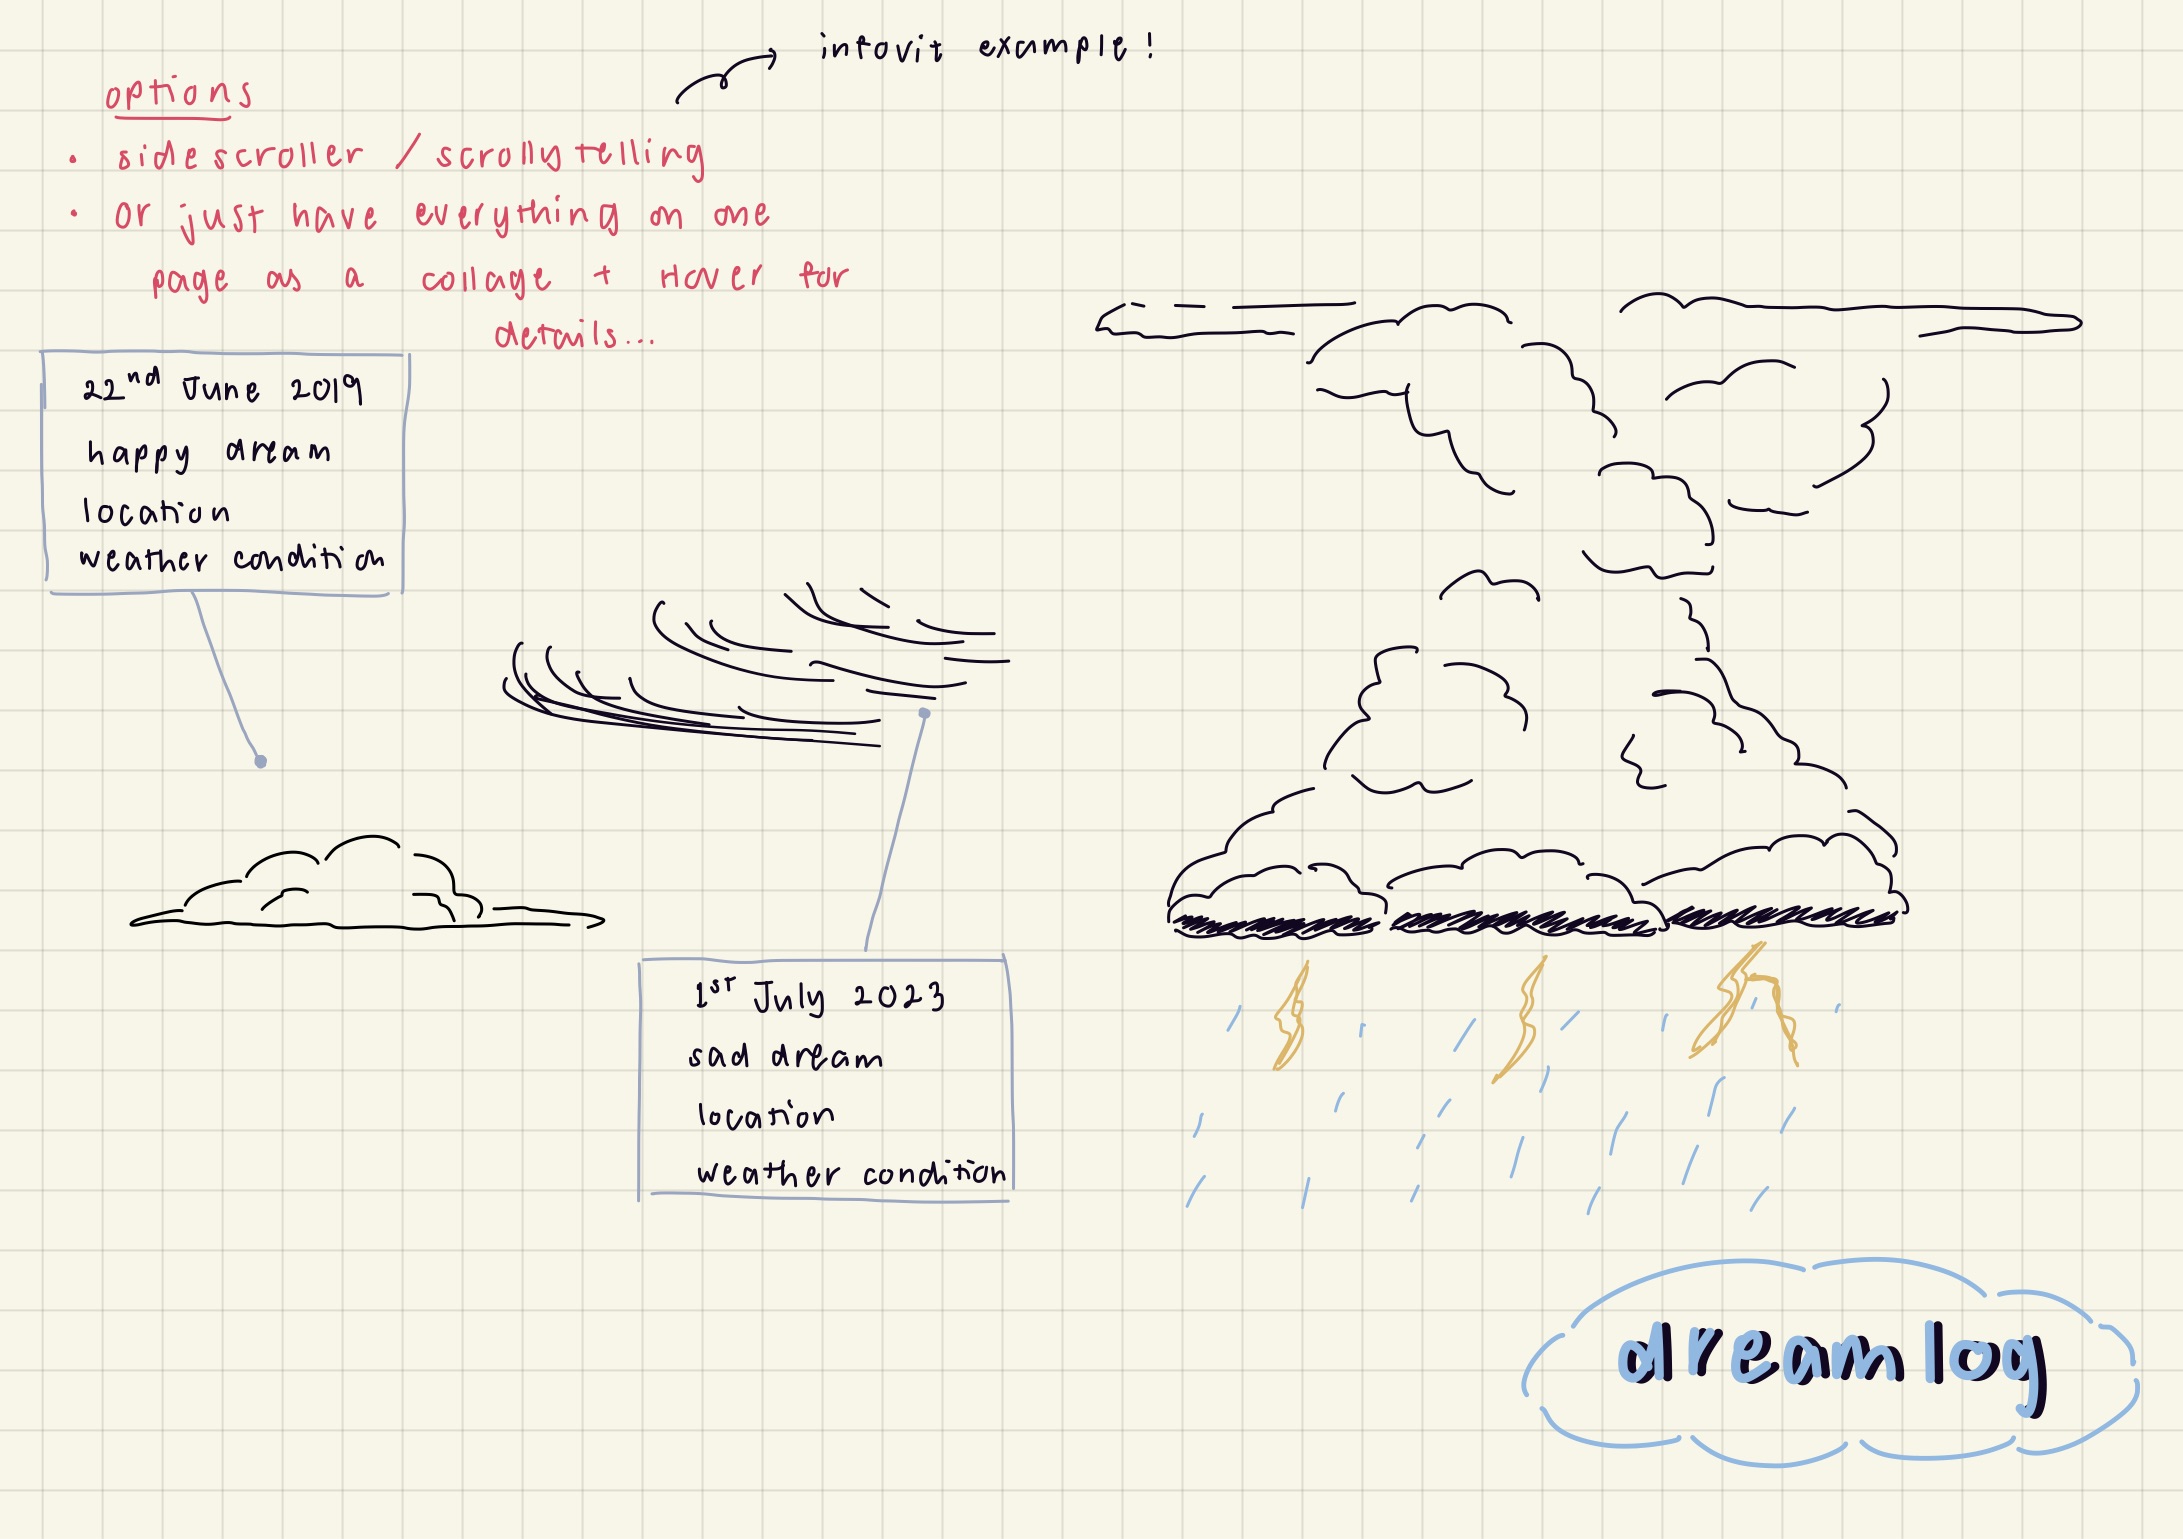 infovit example!
options
• sidescroller / scrollytelling
• or just have everything on one
page as a collage + Hover for
details...
22nd June 2019
happy dream
location
weather condition
1st July 2023
sad dream
location
weather condition
dream log